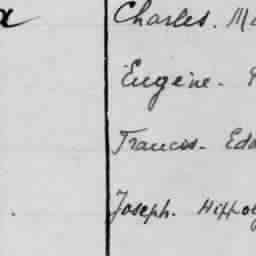 Charles. Ma
Eugène.
Francis. Edo
Joseph. Hippol